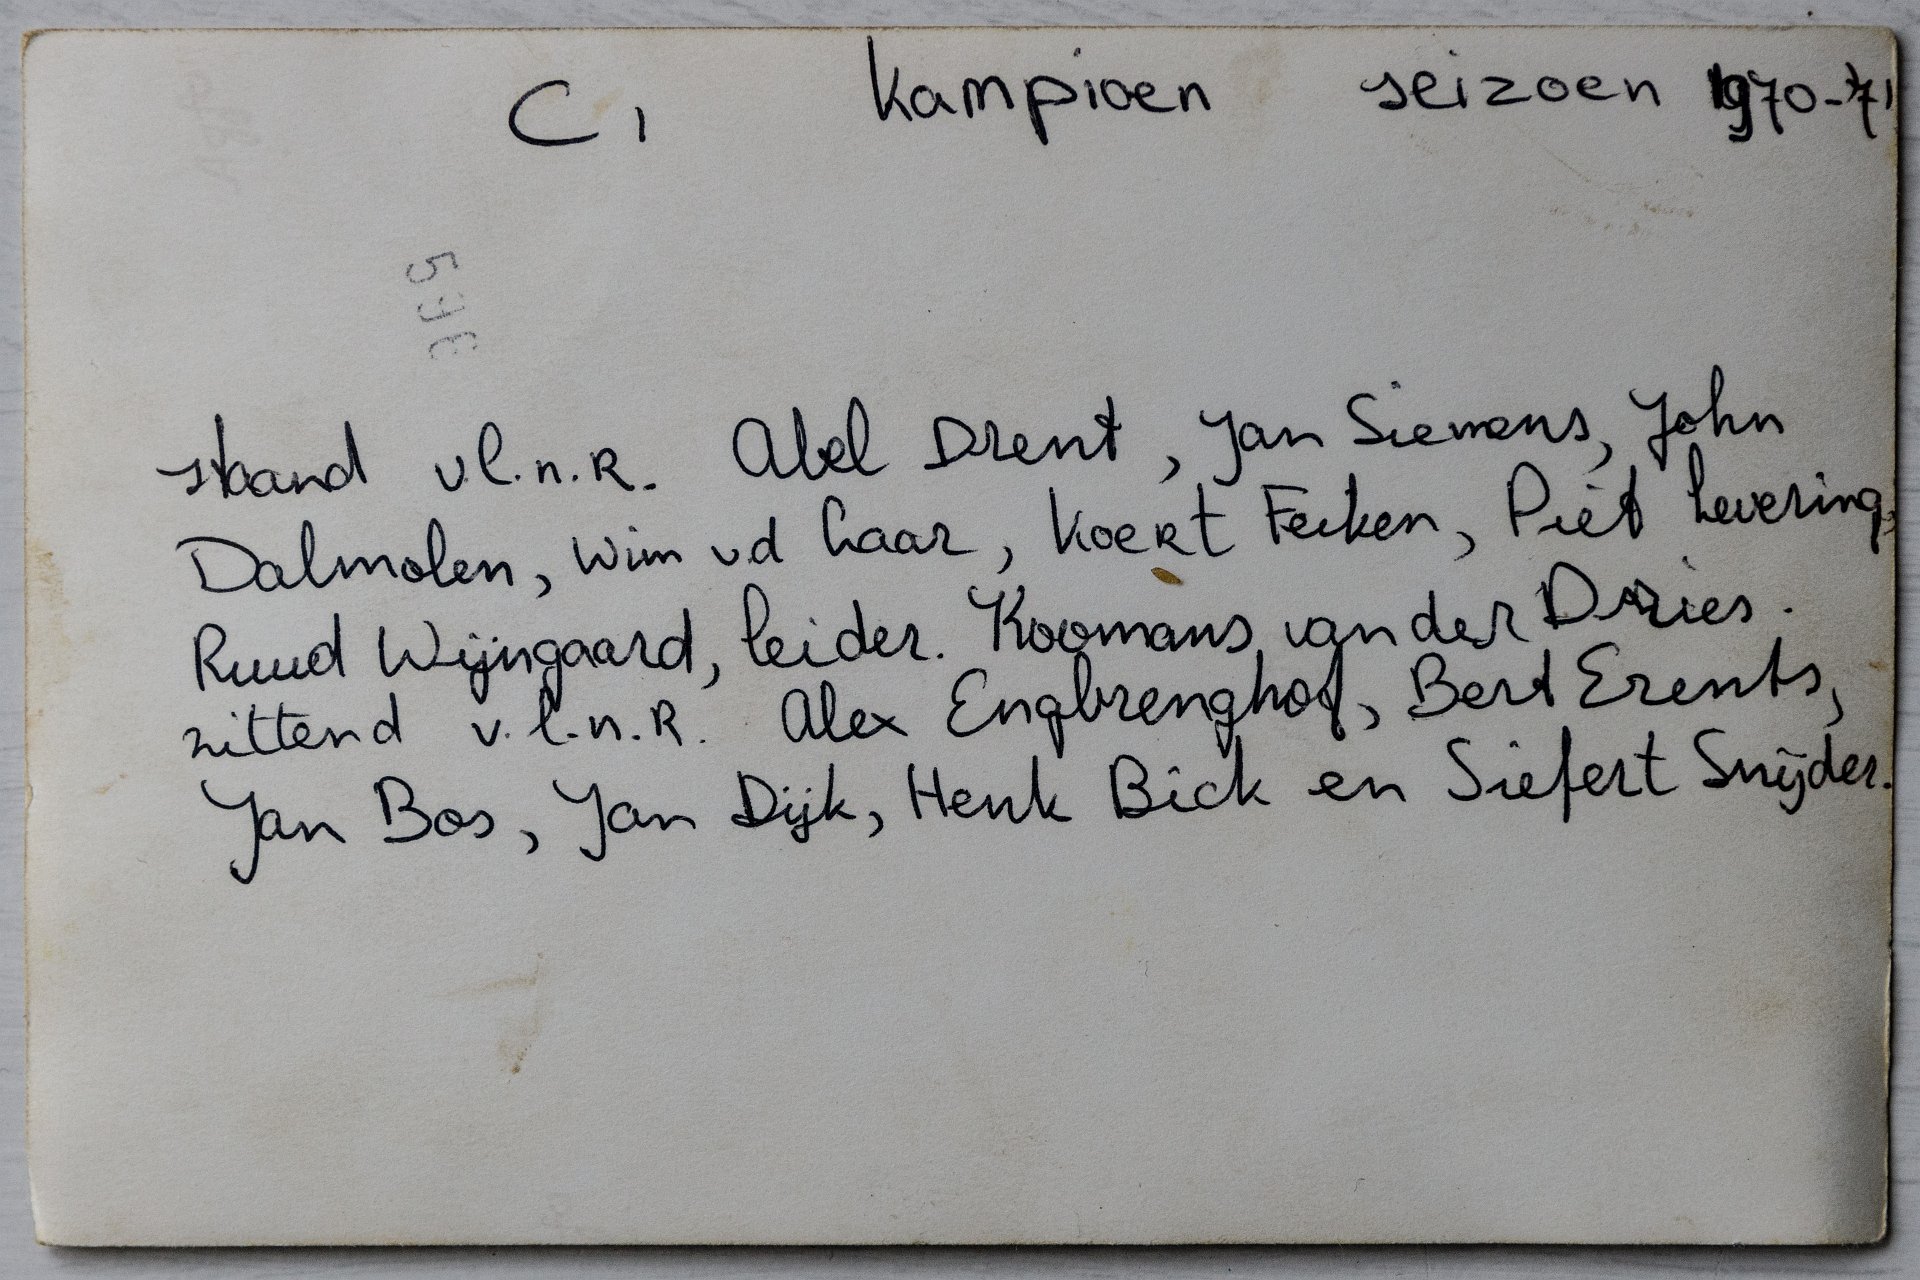 C1 Kampioen seizoen 1970-'71
staand v.l.n.R. Abel Drent, Jan Siemens, John
Dalmolen, Wim v.d Haar, Koert Feiken, Piet Levering,
Ruud Wijngaard, leider. Koomans van der Dries.
zittend v.l.n.R. Alex Engbrenghof, Bert Erents,
Jan Bos, Jan Dijk, Henk Bick en Siefert Snijder.